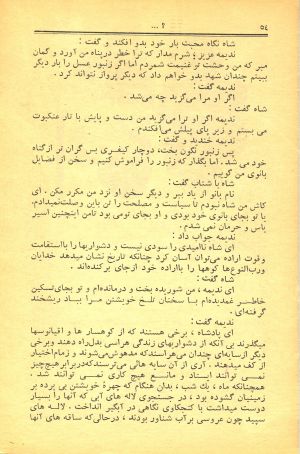 ٥٤
؟ ...
شاه نگاه محبت بار خود بدو افکند و گفت :
ندیمه عزیز ؛ شرم مدار که ترا خطر درپناه من آورد و گمان
مبر که من وحشت ترا غنیمت شمردم اما اگر زنبور عسل را بار دیگر
ببینم چندان شهد بدو خواهم داد که دیگر پرواز نتواند کرد .
ندیمه گفت :
اگر او مرا می‌گزید چه می‌شد .
شاه گفت :
ندیمه اگر او ترا می‌گزید من دست و پایش با تار عنکبوت
می بستم و زیر پای پیلش می‌افکندم .
ندیمه خندید و گفت :
پس زنبور نگون بخت، دوچار کیفری بس گران تر ازگناه
خود می شد. اما بگذار که زنبور را فراموش کنیم و سخن از فضایل
بانوی من گوییم .
شاه با شتاب گفت :
نام بانو از یاد ببر و دیگر سخن او نزد من مکرر مکن . ای
کاش من شاه نبودم تا سیاست و مصلحت را تن باین وصلت‌نمیدادم.
یا تو بجای بانوی خود بودی و او بجای تومی بود تامن اینچنین اسیر
یاس و حرمان نمی شدم .
ندیمه جواب داد :
ای شاه ناامیدی را سودی نیست و دشواریها را بااستقامت
وقوت اراده می‌توان آسان کرد چنانکه تاریخ نشان میدهد خدایان
ورب‌النوع‌ها کوهها را بااراده خود ازجای برکنده‌اند .
شاه گفت :
ای ندیمه ، من شوریده بخت و درمانده‌ام و تو بجای‌تسکین
خاطر غمدیده‌ام با سخنان تلخ خویشتن مرا بباد ریشخند
گرفته‌ای .
ندیمه گفت :
ای پادشاه ، برخی هستند که از کوهسار ها و اقیانوسها
میگذرند بی آنکه از دشواریهای زندگی هراسی بدل‌راه دهند وبرخی
دیگر ازسایه‌ای چندان می‌هراسندکه مدهوش‌می‌شوند و زمام‌اختیار
از کف میدهند . آری از آن سایه هائی می‌ترسندکه‌دربرابرهیچ‌چیز
نمی توانند ایستاد و مانع هیچ کاری نمی توانند شد .
همچنانکه ماه، یك شب ، بدان هنگام که چهرهٔ خویشتن بی پرده بر
زمینیان گشوده بود ، در جستجوی لاله های آبی که آنها را بسیار
دوست میداشت با کنجکاوی نگاهی در آبگیر انداخت . لاله های
سپید چون عروسی برآب شناور بودند ، درحالی‌که ساقه های آنها